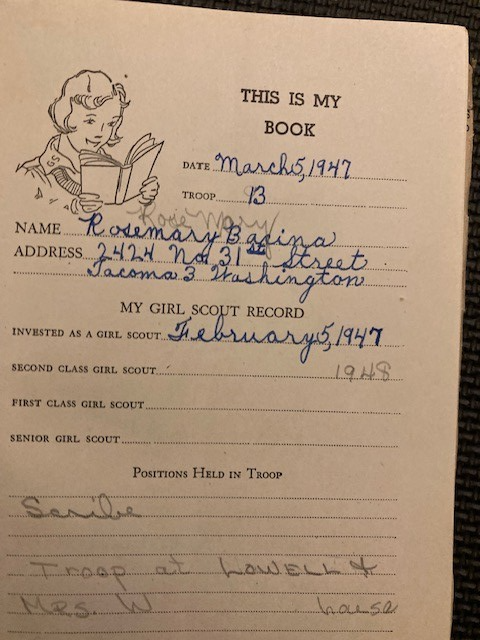 THIS IS MY
BOOK
GS
DATE March 5, 1947
TROOP 13
Rose Mary
NAME Rosemary Bacina
ADDRESS 2424 No 31st Street
Tacoma 3 Washington
MY GIRL SCOUT RECORD
INVESTED AS A GIRL SCOUT February 5, 1947
SECOND CLASS GIRL SCOUT 1948
FIRST CLASS GIRL SCOUT
SENIOR GIRL SCOUT
POSITIONS HELD IN TROOP
Scribe
Troop at LOWELL &
Mrs. W house